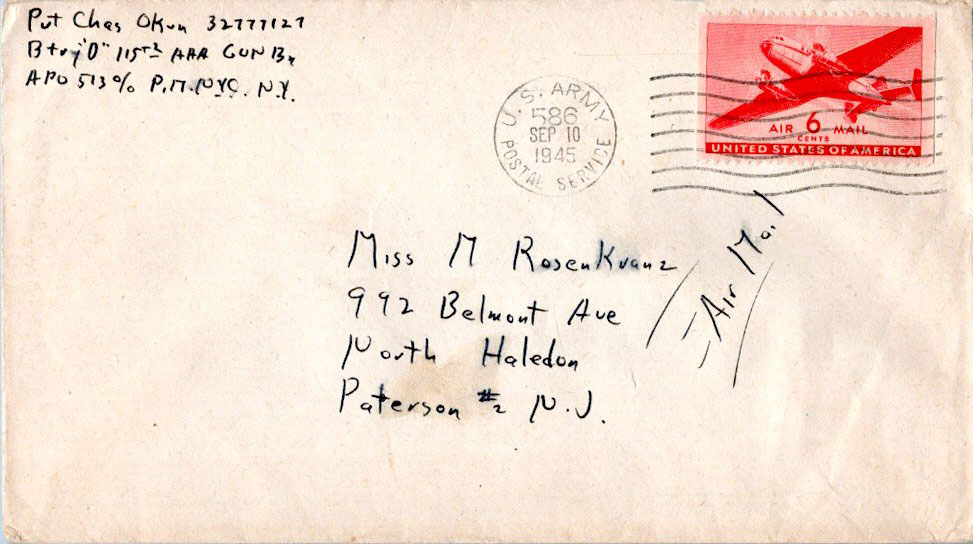 Pvt Chas Okun 32777127
Btry "D" 115th AAA GUN Bn
APO 513 % P.M. NYC. N.Y.
U.S. ARMY
586
SEP 10
1945
POSTAL SERVICE
AIR 6 MAIL
CENTS
UNITED STATES OF AMERICA
Miss M Rosenkranz
992 Belmont Ave
North Haledon
Paterson #2 N.J.
Air Mail